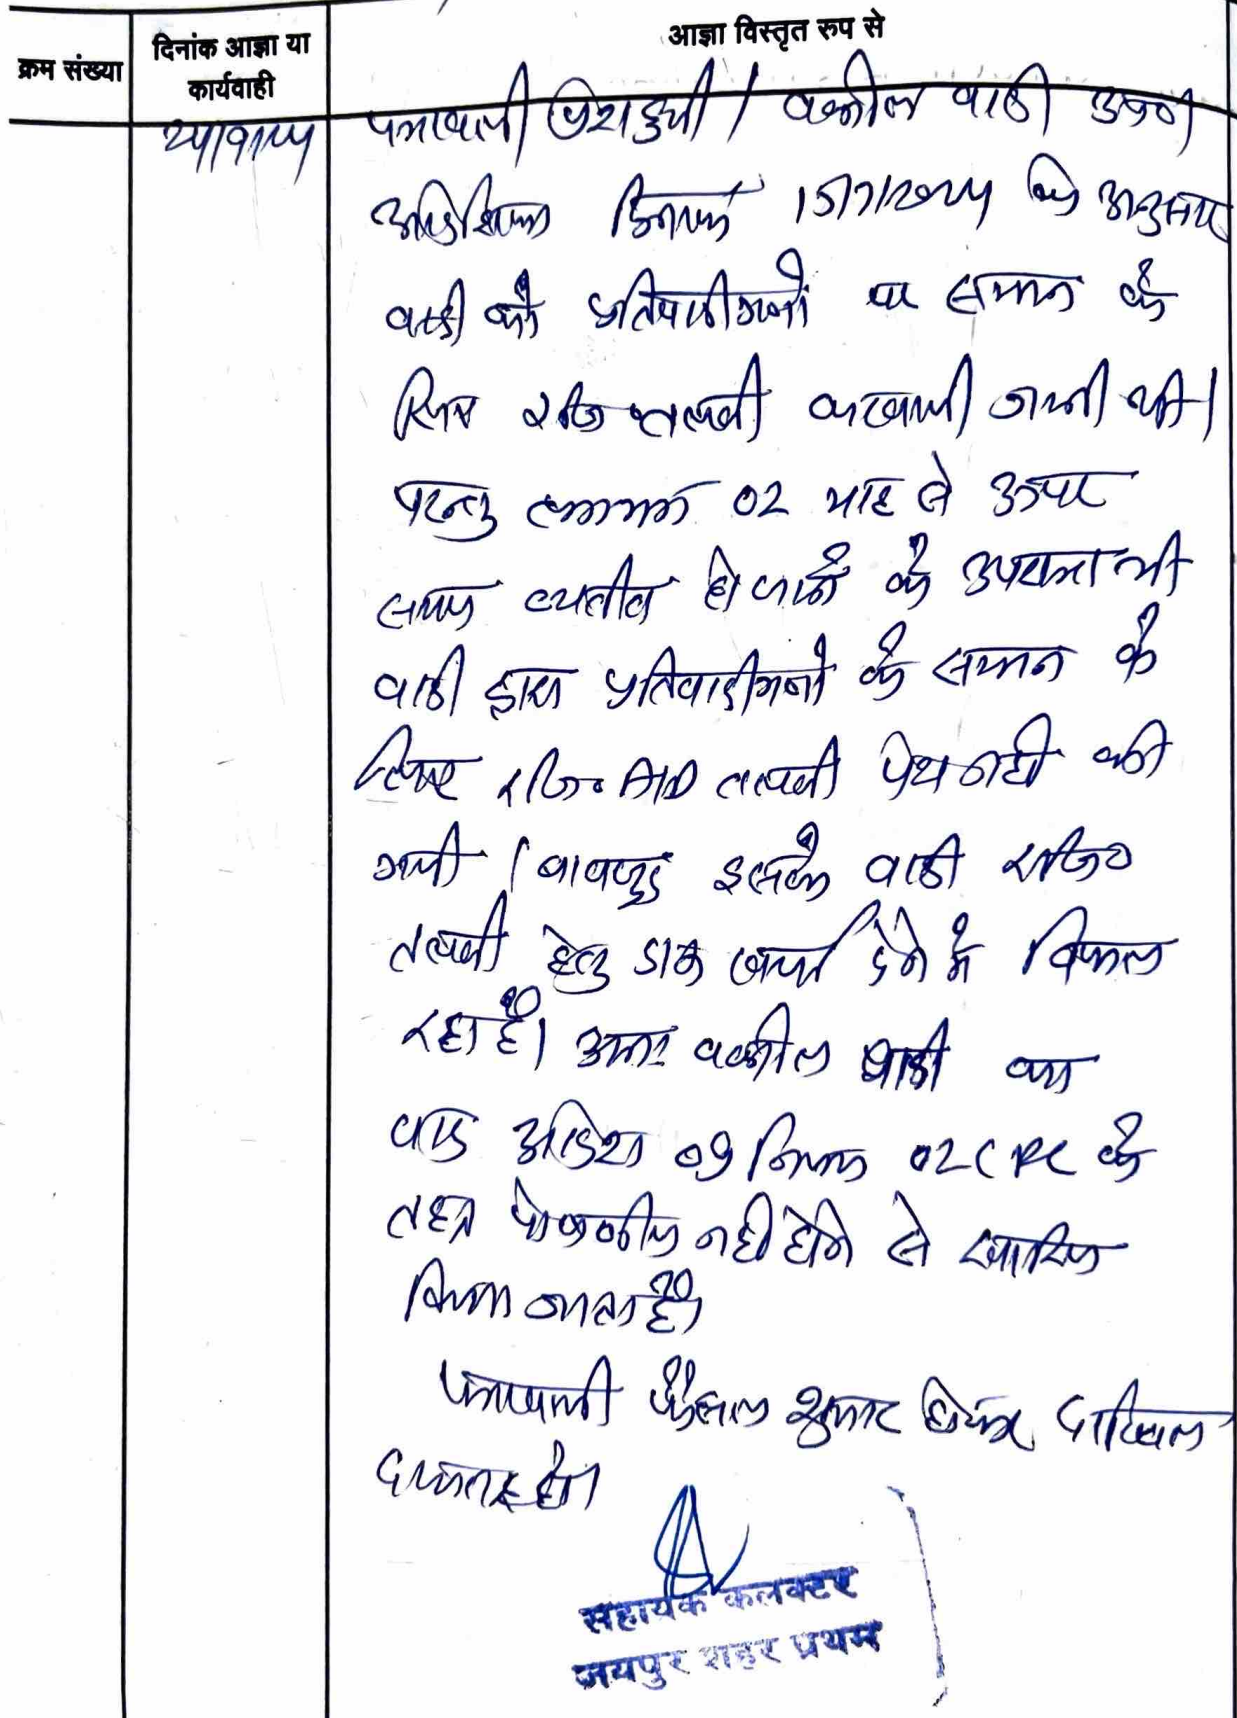 क्रम संख्या
दिनांक आज्ञा या
कार्यवाही
आज्ञा विस्तृत रूप से
पत्रावली पेश हुयी। वकील वादी उप०।
आदेशिका दिनांक के अनुसार
वादी को प्रतिवादीगणों पर समन के
लिए रजि० तलबी करवानी थी।
परन्तु लगभग 02 माह से ऊपर
समय व्यतीत हो जाने के उपरान्त भी
वादी द्वारा प्रतिवादीगणों के समन के
लिए रजि० AD तलबी पेश नही की
गयी। बावजूद इसके वादी रजि०
तलबी हेतु डाक खर्चा देने में विफल
रहा है। अतः वकील वादी का
वाद आदेश 09 नियम 02 CPC के
तहत पोषणीय नही होने से खारिज
किया जाता है।
पत्रावली फैसल शुमार होकर दाखिल
दफ्तर हो।
सहायक कलक्टर
जयपुर शहर प्रथम